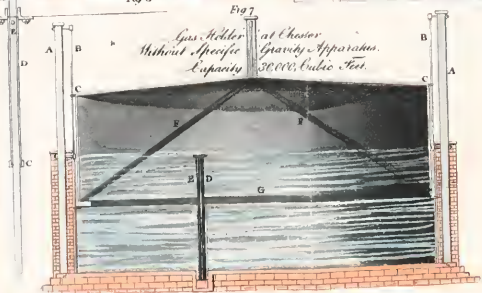 Fig 7
Gas Holder at Chester
Without Specific Gravity Apparatus.
Capacity 30,000, Cubic Feet.
E
D
C
A
B
B
A
C
C
F
F
E D
G